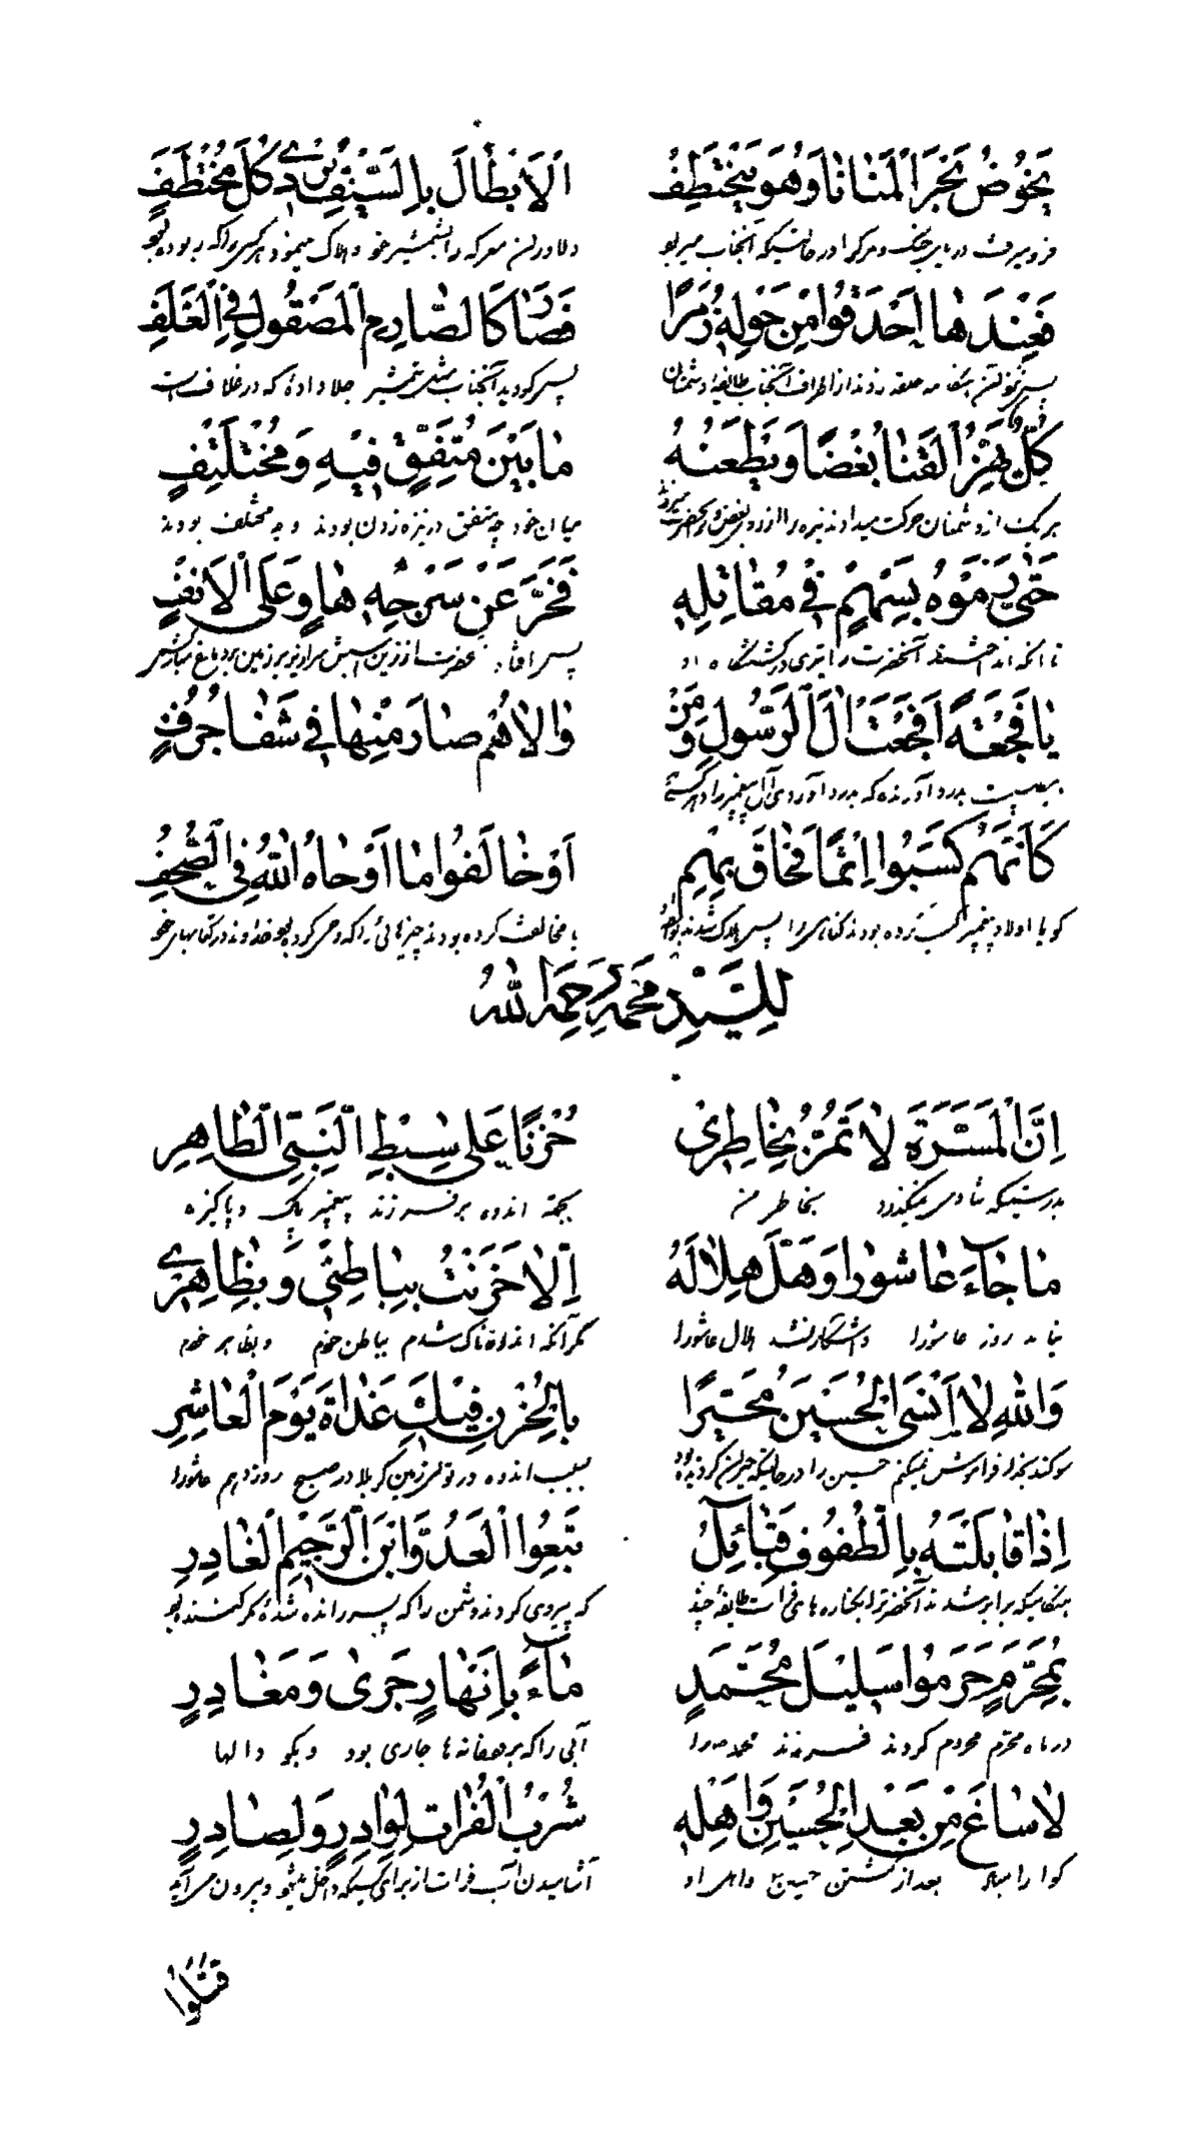 يَخُوضُ بَحْرَ الْمَنَايَا وَهُوَ يَخْتَطِفُ الْاَبْطَالَ بِالسَّيْفِ يُرْدي كُلَّ مُخْتَطَفٍ
فرو میرفت دریای جنک و مرک را در حالتیکه آنجناب میربود دلاوران معرکه را بشمشیر خود و هلاک مینمود هرکسی را که ربوده بود
فَعِنْدَهَا اَحْدَقُوا مِنْ حَوْلِهِ زُمَرًا فَصَارَ كَالصَّارِمِ الْمَصْقُولِ فِي الْغَلَفِ
حلقه زدند از اطراف آنجناب طایفهٔ دشمنان پس کردید آنجناب مثل شمشیر جلا دادهٔ که در غلاف است
كُلٌّ يَهُزُّ الْقَنَا بُغْضًا وَيَطْعَنُهُ مَا بَيْنَ مُتَّفِقٍ فِيهِ وَمُخْتَلِفٍ
هر یک از دشمنان حرکت میدادند نیزه را از روی بغض میان خود چه متفق در نیزه زدن بودند و چه مختلف بودند
حَتّى رَمَوْهُ بِسَهْمٍ في مُقَاتِلِهِ فَخَرَّ عَنْ سَرْجِهِ هَاوٍ عَلَى الْاَنِفِ
تا آنکه انداختند آنحضرت را تیری در کشتنگاه او پس افتاد حضرت از زین اسبش
يَا فَجْعَةً اَفْجَعَتْ الَ الرَّسُولِ وَمَنْ وَالاهُمُ صَارَ مِنْهَا في شَفَا جُرُفٍ
مصیبت بدرد آورنده که بدرد آوردی آل پیغمبر را و هر کسی
كَاَنَّهُمْ كَسَبُوا اِثْمًا فَحَاقَ بِهِمِ اَوْ خَالَفُوا مَا اَوْحَاهُ اللهُ فِي الصُّحُفِ
کویا اولاد پیغمبر کسب کرده بودند کناهی را پس هلاک شدند یا مخالفت کرده بودند چیزهائی را که وحی کرده بود خداوند در کتابهای خود
لِلسَّيِّدِ مُحَمَّد رَحِمَهُ اللهُ
اِنَّ الْمَسَرَّةَ لَا تَمُرُّ بِخَاطِري حُزْنًا عَلى سِبْطِ النَّبِيِّ الطَّاهِرِ
بدرستیکه شادی نمیکذرد بخاطر من بجهة اندوه بر فرزند پیغمبر پاک و پاکیزه
مَا جَآءَ عَاشُورَا وَهَلَّ هِلَالُهُ اِلَّا حَزِنْتُ بِبَاطِني وَبِظَاهِري
نیامد روز عاشورا و آشکار نشد هلال عاشورا مکر آنکه اندوهناک شدم بباطن خودم و بظاهر خودم
وَاللهِ لَا اَنْسَى الْحُسَيْنَ مُحَيَّرًا بِالْحُزْنِ فِيكِ غَدَاةَ يَوْمِ الْعَاشِرِ
سوکند بخدا فراموش نمیکنم حسین را در حالتیکه حیران کردیده بود بسبب اندوه در تو ای زمین کربلا در صبح روز دهم عاشورا
اِذْ قَابَلَتْهُ بِالطُّفُوفِ قَبَائِلٌ تَبِعُوا الْعَدُوَّ ابْنَ الرَّجِيمِ الْغَادِرِ
هنکامیکه برابر شدند آنحضرترا بکناره های فرات طایفهٔ چند که پیروی کردند دشمن را که پسر رانده شدهٔ مکر کننده بود
بِمُحَرَّمٍ حَرَمُوا سَلِيلَ مُحَمَّدٍ مَآءً بِاَنْهَارٍ جَرى وَمَغَادِرِ
در ماه محرم محروم کردند فرزند محمد را آبی را که برودخانه ها جاری بود و بکودالها
لَا سَاغَ مِنْ بَعْدِ الْحُسَيْنِ وَاَهْلِهِ شُرْبُ الْفُرَاتِ لِوَارِدٍ وَلِصَادِرِ
کوارا مباد بعد از کشتن حسین و اهل او آشامیدن آب فرات از برای کسیکه داخل میشود و بیرون میآید
قَتَلُوا